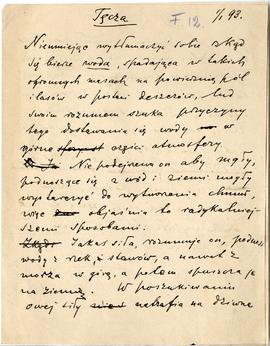 Tęcza
F 12.
1/I 93.
Nieumiejąc wytłumaczyć sobie skąd
się bierze woda, spadająca w takich
ogromnych masach na powierzchnię pól
i lasów w postaci deszczów, lud
swoim rozumem szuka przyczyny
tego dostawania się wody w
górne części atmosfery.
Nie podejrzewa on aby mgły,
podnoszące się z wód i ziemi mogły
wystarczyć do wytworzenia chmur,
więc objaśnia to radykalniej-
szemi sposobami.
Jakaś siła, rozumuje on, podnosi
wody z rzek, stawów, a nawet z
morza w górę, a potem spuszcza je
na ziemię. W poszukiwaniu
owej siły natrafia na dziwne